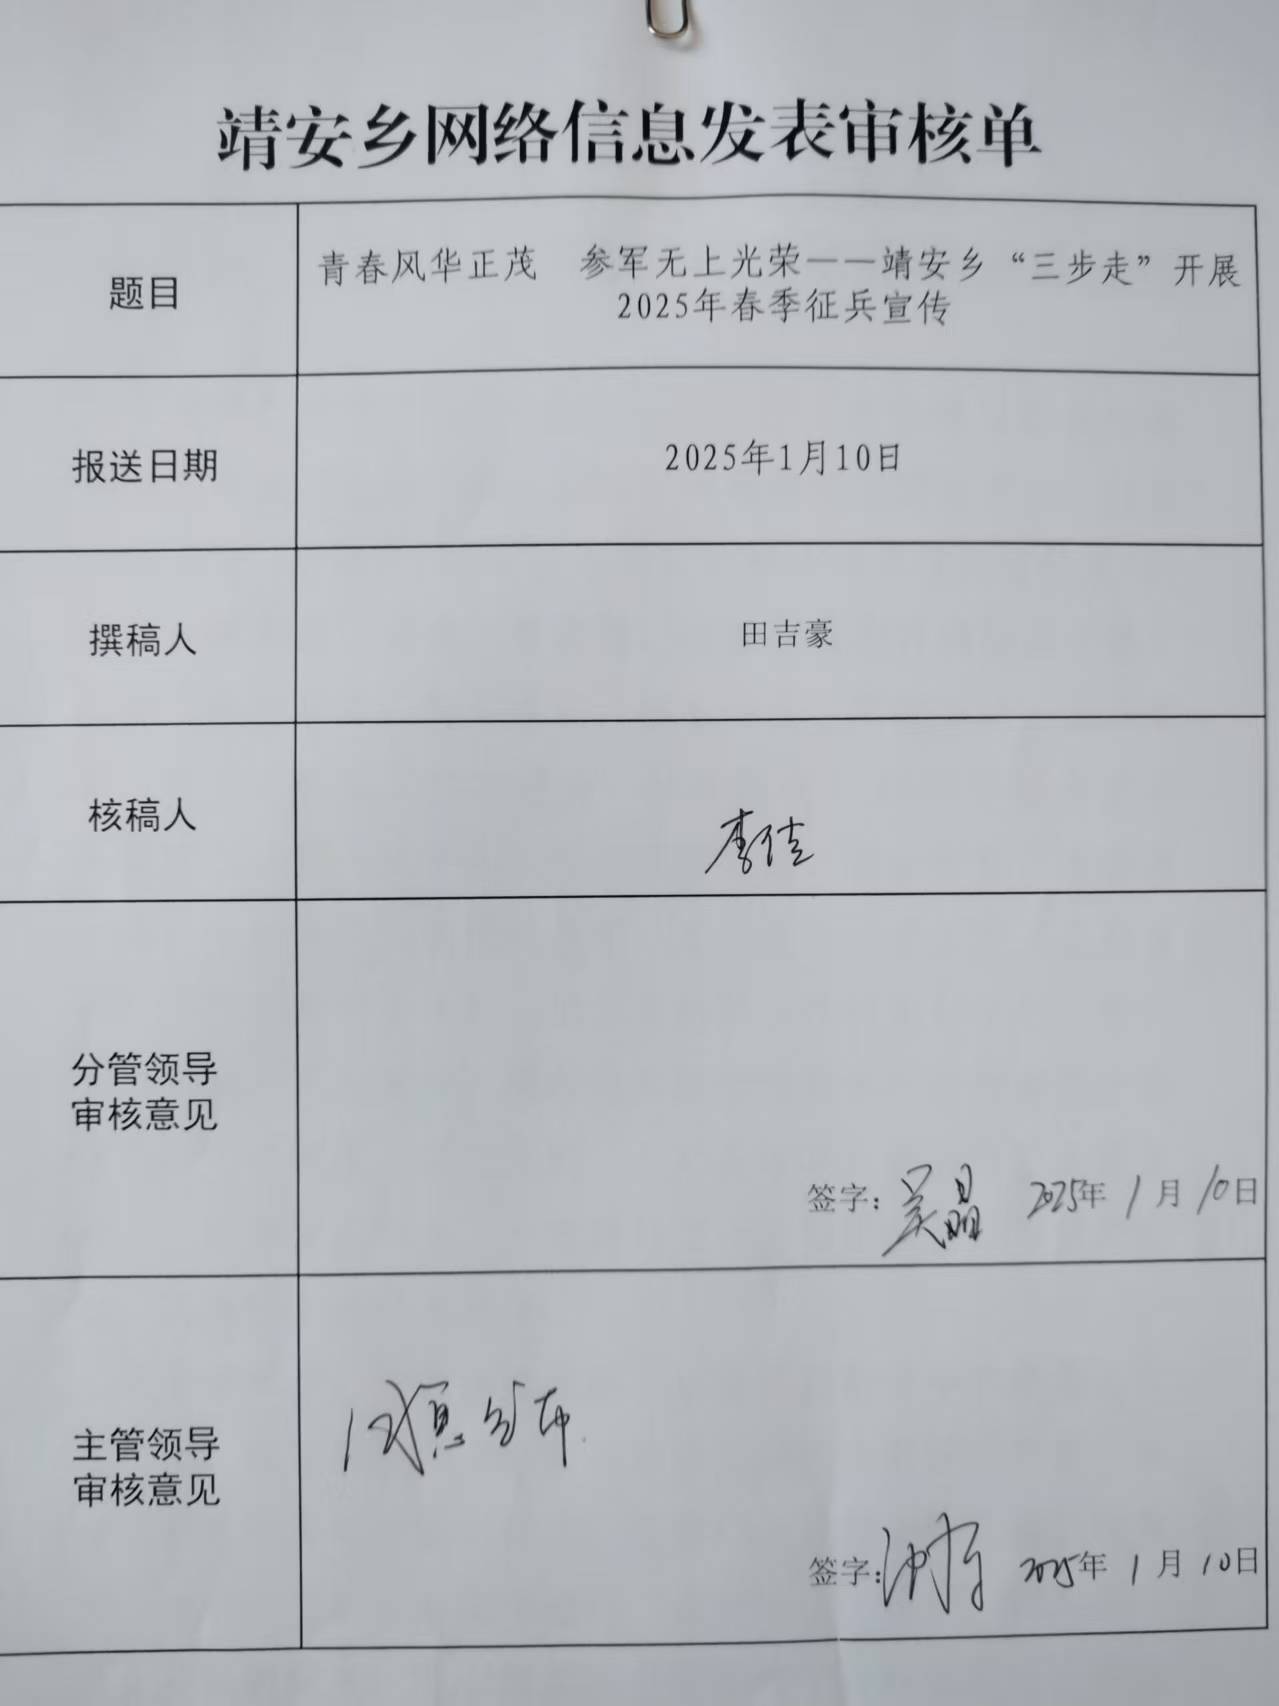 靖安乡网络信息发表审核单
题目
青春风华正茂 参军无上光荣——靖安乡“三步走”开展
2025年春季征兵宣传
报送日期
2025年1月10日
撰稿人
田吉豪
核稿人
李佳
分管领导
审核意见
签字：吴晶 2025年1月10日
主管领导
审核意见
同意发布
签字： 2025年1月10日